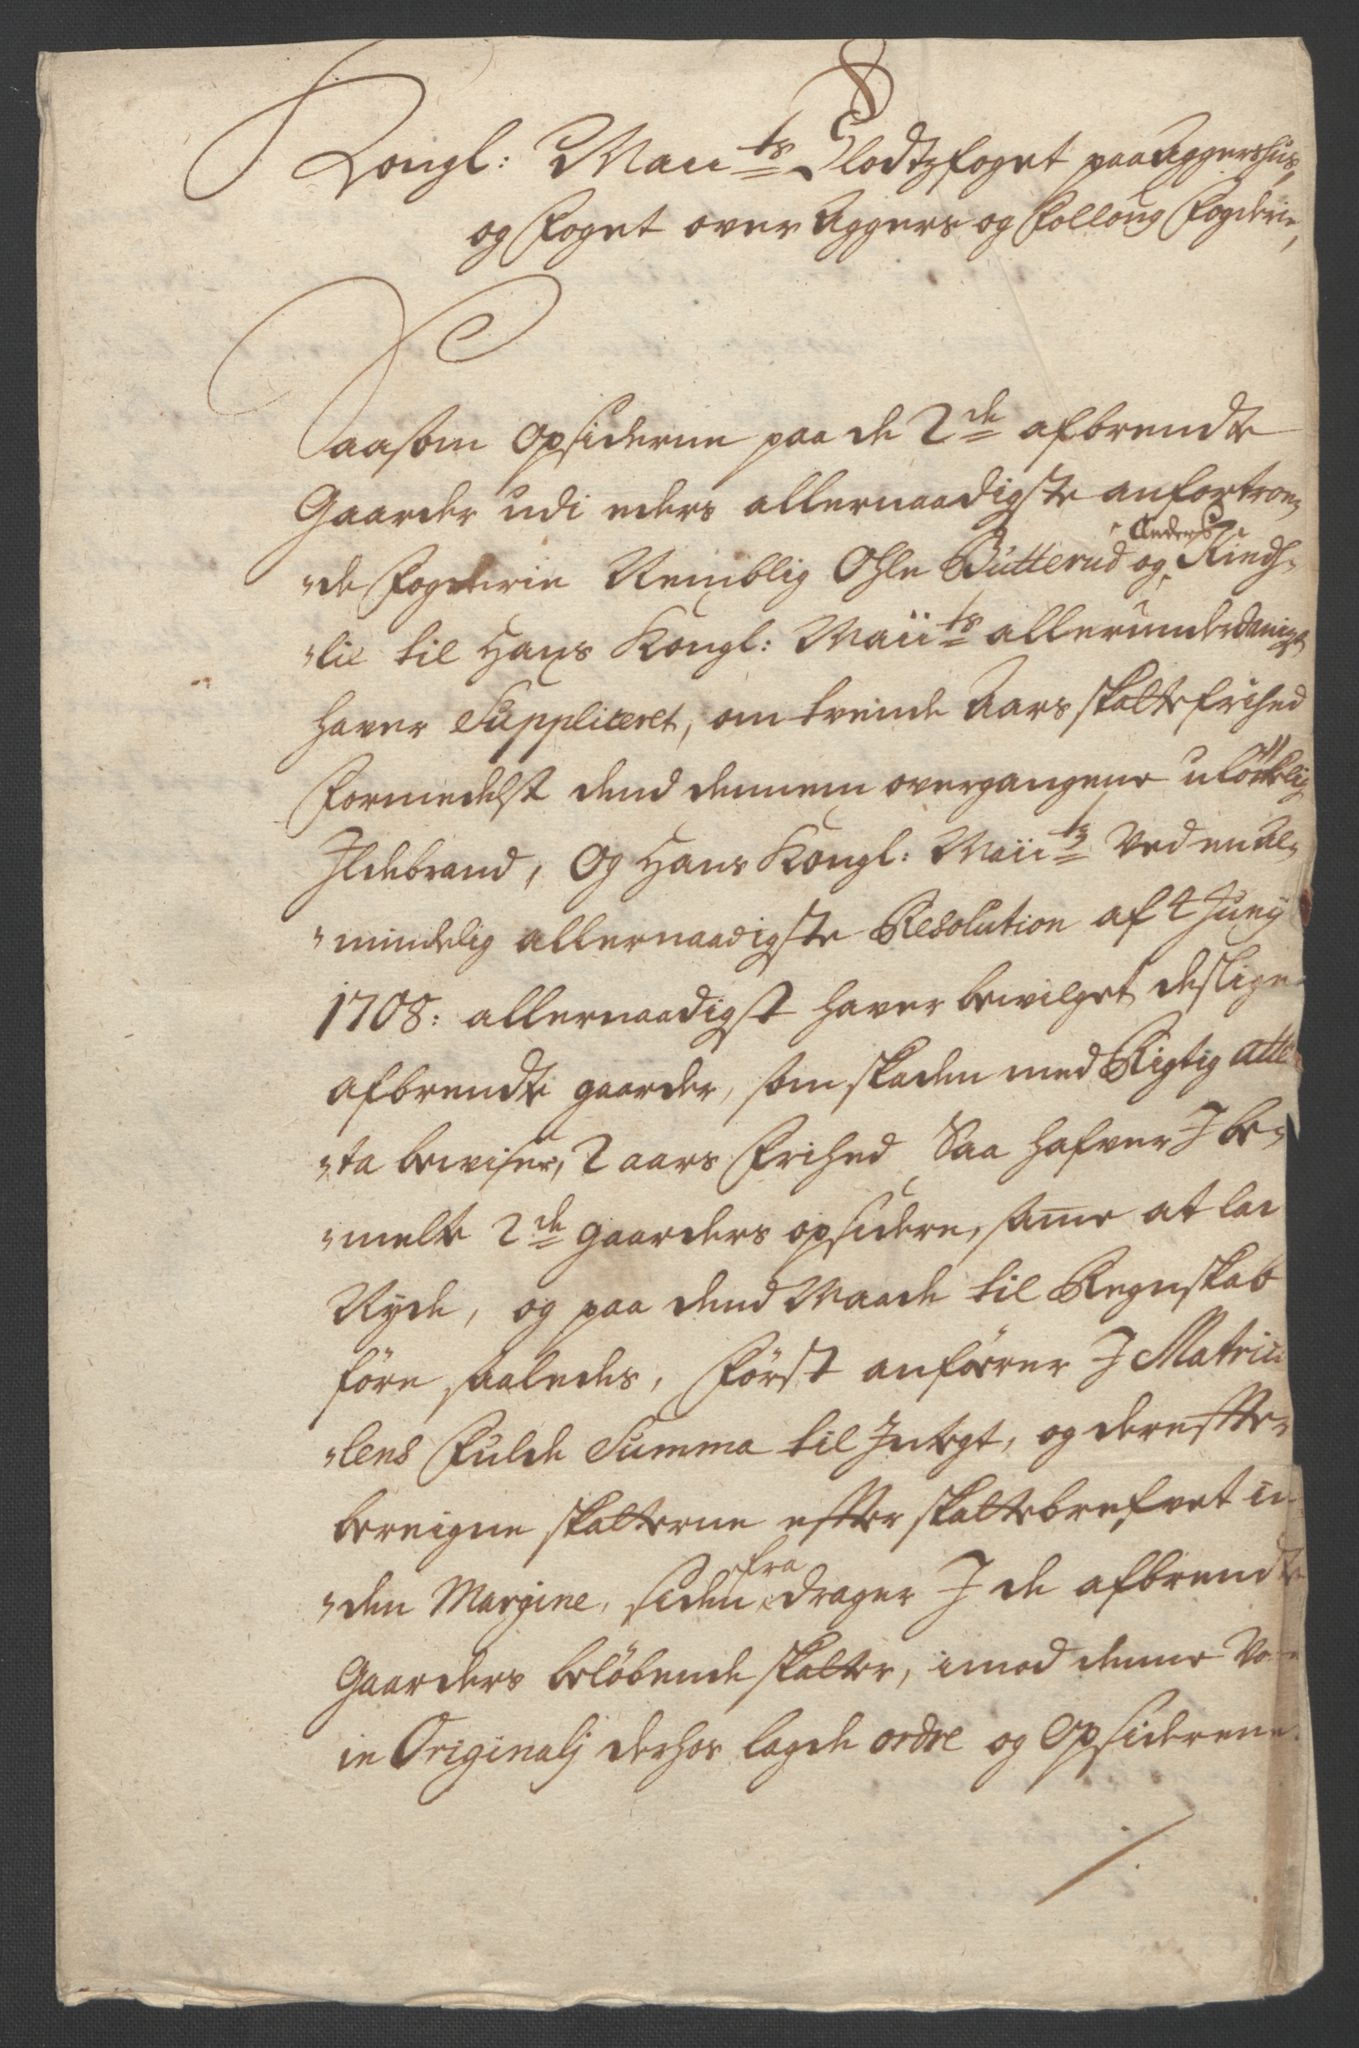 Kongl: Maii<sup>ts</sup> Slodtzfoget paa Aggershus,
og Foget over Aggers og Folloug Fogderie,
Saasom Opsiderne paa de 2<sup>de</sup> afbrendte
Gaarder udi eders allernaadigste anfortroe„
„de Fogderie Nemblig Ohle Butterud og Anders Kindh„
„lie til Hans Kongl: Maii<sup>ts</sup> allerunderdanigst
haver Suppliceret, om tvende Aars skattefrihed
Formedelst dend dennem overgangene ulökkelig
Ildebrand, Og Hans Kongl: Maii<sup>ts</sup> Ved en Al„
„mindelig allernaadigste Resolution af 4 Junij
1708: allernaadigst haver bewilget deslige
afbrendte gaarder, som skaden med Rigtig atte
„sta bewiser, 2 aars Frihed Saa hafver I be„
„melte 2<sup>de</sup> gaarders opsidere, same at lad
Nyde, og paa dend Maade til Regnskab
före saaledes, Först anförer I Matricu
„lens Fulde Summa til Integt, og dereffte„
bereigne skatterne effter skattebrefvet in„
„den Margine, siden fra drager I de afbrendte
Gaarders belöbende skatter, imod denne Vo
in Originalj derhos lagde ordre og Opsiderene